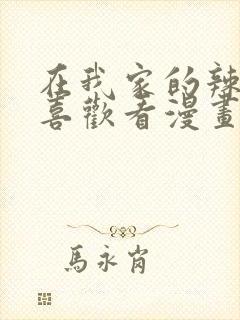 在我家的辣
喜歡看漫畫
馬永肖